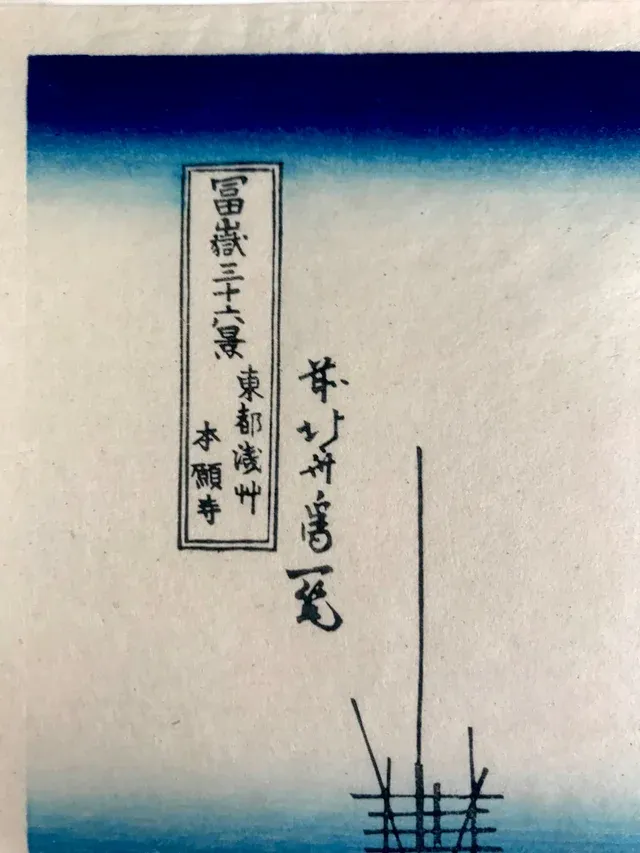 冨嶽三十六景
東都浅艸
本願寺
前北斎為一筆